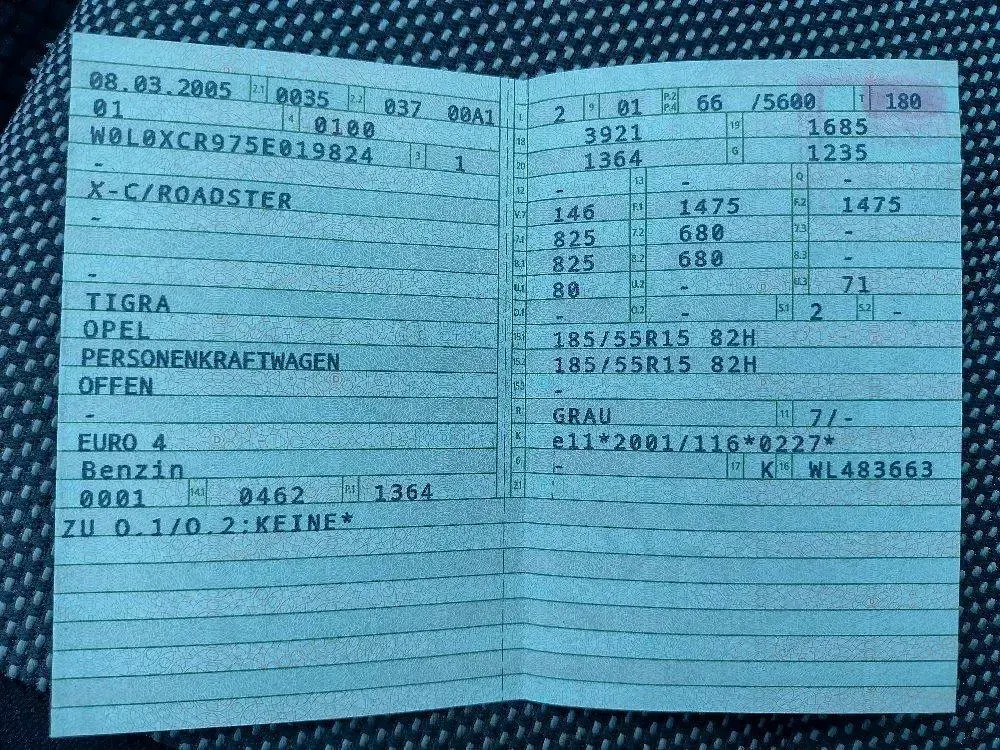 08.03.2005 2.1 0035 2.2 037 00A1
01 4 0100
W0L0XCR975E019824 3 1
-
X-C/ROADSTER
-
-
TIGRA
OPEL
PERSONENKRAFTWAGEN
OFFEN
-
EURO 4
Benzin
0001 14.1 0462 P.1 1364
ZU O.1/O.2:KEINE*
L 2 9 01 P.2 P.4 66 /5600 T 180
18 3921 19 1685
20 1364 G 1235
12 - 13 - Q -
V.7 146 F.1 1475 F.2 1475
7.1 825 7.2 680 7.3 -
8.1 825 8.2 680 8.3 -
U.1 80 U.2 - U.3 71
O.1 - O.2 - S.1 2 S.2 -
15.1 185/55R15 82H
15.2 185/55R15 82H
15.3 -
R GRAU 11 7/-
K e11*2001/116*0227*
6 - 17 K 16 WL483663
21 -